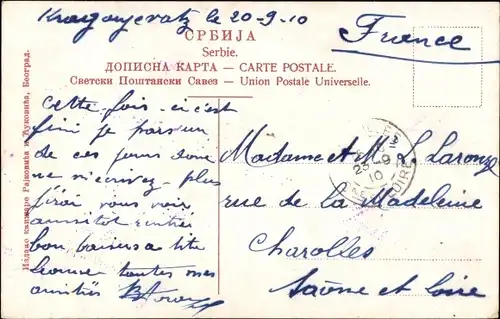 Kragoujevatz le 20-9-10
France
СРБИЈА
Serbie.
ДОПИСНА КАРТА — CARTE POSTALE.
Светски Поштански Савез — Union Postale Universelle.
Издање књижаре Рајковића и Ђуковића, Београд.
cette fois-ci c'est
fini je pars un
de ces jours donc
ne m'écrivez plus
j'irai vous voir
aussitôt rentré
bon baisers a
toutes mes
amitiés
Madame et M. L. Laronze
rue de la Madeleine
Charolles
Saône et Loire
23-9
10
LOIRE